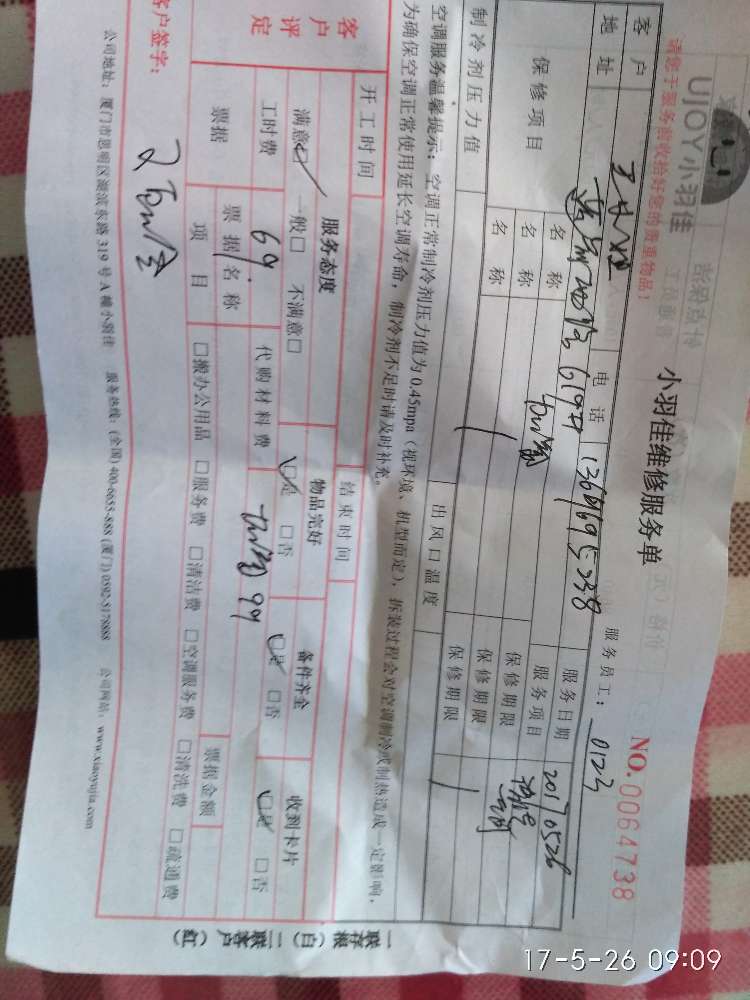 UJOY小羽佳
小羽佳维修服务单
NO.0064738
请您于服务前收拾好您的贵重物品！
服务员工：0123
客户
电话 13696975238
服务日期 20170526
地址
619#
服务项目
保修项目
名称
保修期限
名称
保修期限
制冷剂压力值
出风口温度
保修期限
空调服务温馨提示：空调正常制冷剂压力值为0.45mpa（视环境、机型而定），拆装过程会对空调制冷或制热造成一定影响，
为确保空调正常使用延长空调寿命，制冷剂不足时请及时补充。
开工时间
结束时间
客户评定
服务态度
物品完好
备件齐全
收到卡片
满意☑ 一般□ 不满意□
☑是 □否
☑是 □否
☑是 □否
工时费 69
代购材料费 99
票据
票据名称
票据金额
项目
□搬办公用品 □服务费 □清洁费 □空调服务费 □清洗费 □疏通费
客户签字：
公司地址：厦门市思明区湖滨东路319号A幢小羽佳 服务热线：(全国)400-6655-888 (厦门)0592-5178888 公司网站：www.xiaoyujia.com
一联存根（白）二联客户（红）
17-5-26 09:09